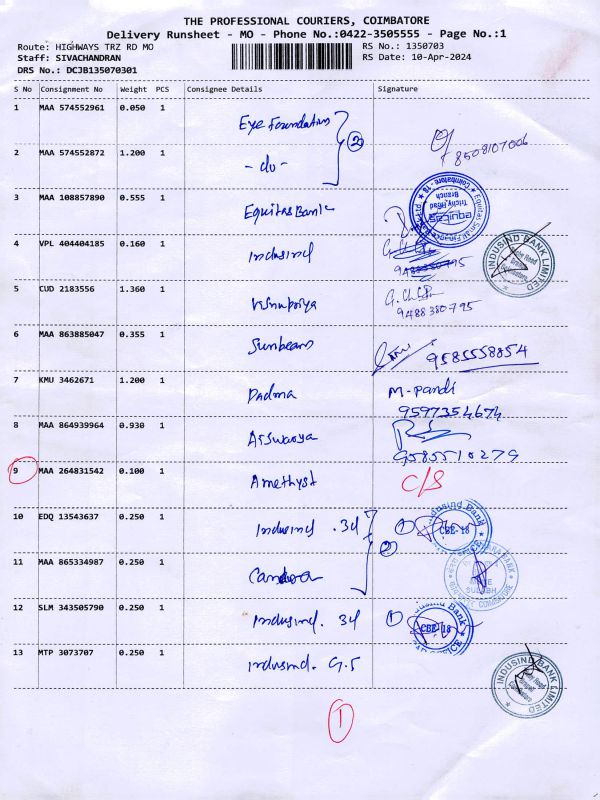 THE PROFESSIONAL COURIERS, COIMBATORE
Delivery Runsheet - MO - Phone No.:0422-3505555 - Page No.:1
Route: HIGHWAYS TRZ RD MO RS No.: 1350703
Staff: SIVACHANDRAN RS Date: 10-Apr-2024
DRS No.: DCJB135070301
S No Consignment No Weight PCS Consignee Details Signature
1 MAA 574552961 0.050 1 Eye Foundation 2
2 MAA 574552872 1.200 1 - do - 8508107006
3 MAA 108857890 0.555 1 Equitas Bank
4 VPL 404404185 0.160 1 Indusind
5 CUD 2183556 1.360 1 Vishnupriya 9488380795
6 MAA 863885047 0.355 1 Sunbeam 9585558854
7 KMU 3462671 1.200 1 Padma M. Pandi
9597354674
8 MAA 864939964 0.930 1 Aiswarya
9585510279
9 MAA 264831542 0.100 1 Amethyst C/S
10 EDQ 13543637 0.250 1 Indusind .34 1 Indusind Bank CBE-18
11 MAA 865334987 0.250 1 Canara 2
12 SLM 343505790 0.250 1 Indusind. 34 1 Indusind Bank CBE-18
13 MTP 3073707 0.250 1 Indusind. G.5 INDUSIND BANK LIMITED
1